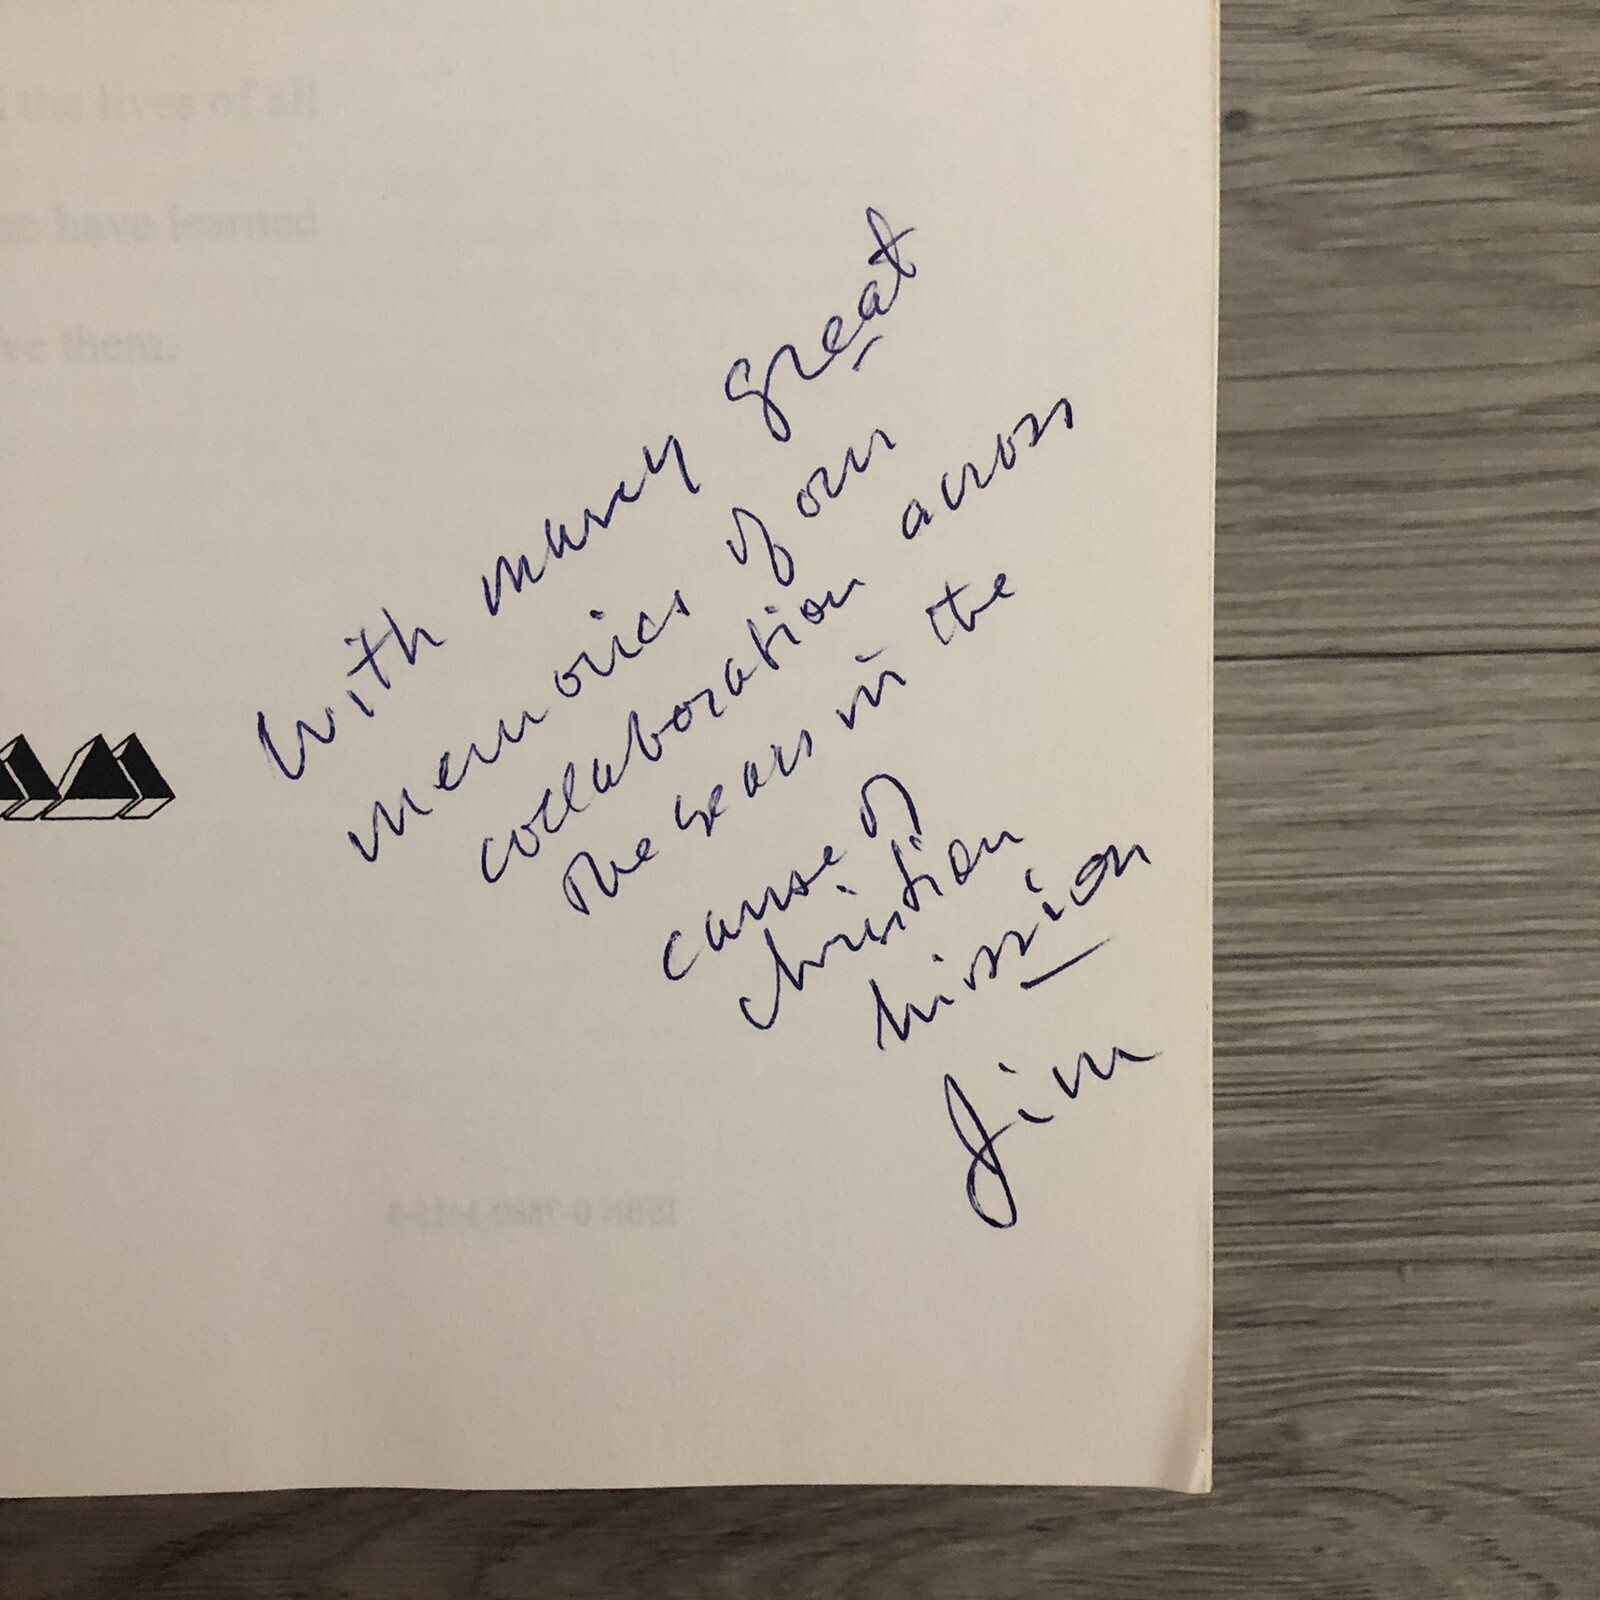 the lives of all
have learned
them.
With many great
memories of our
collaboration across
the years in the
cause of
christian
mission
Jim
ISBN 0-7880-1415-3